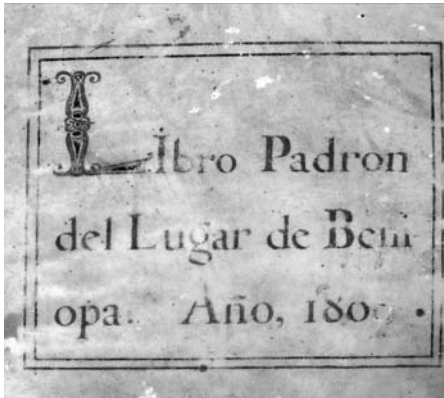 LIbro Padron
del Lugar de Beni-
opa. Año,